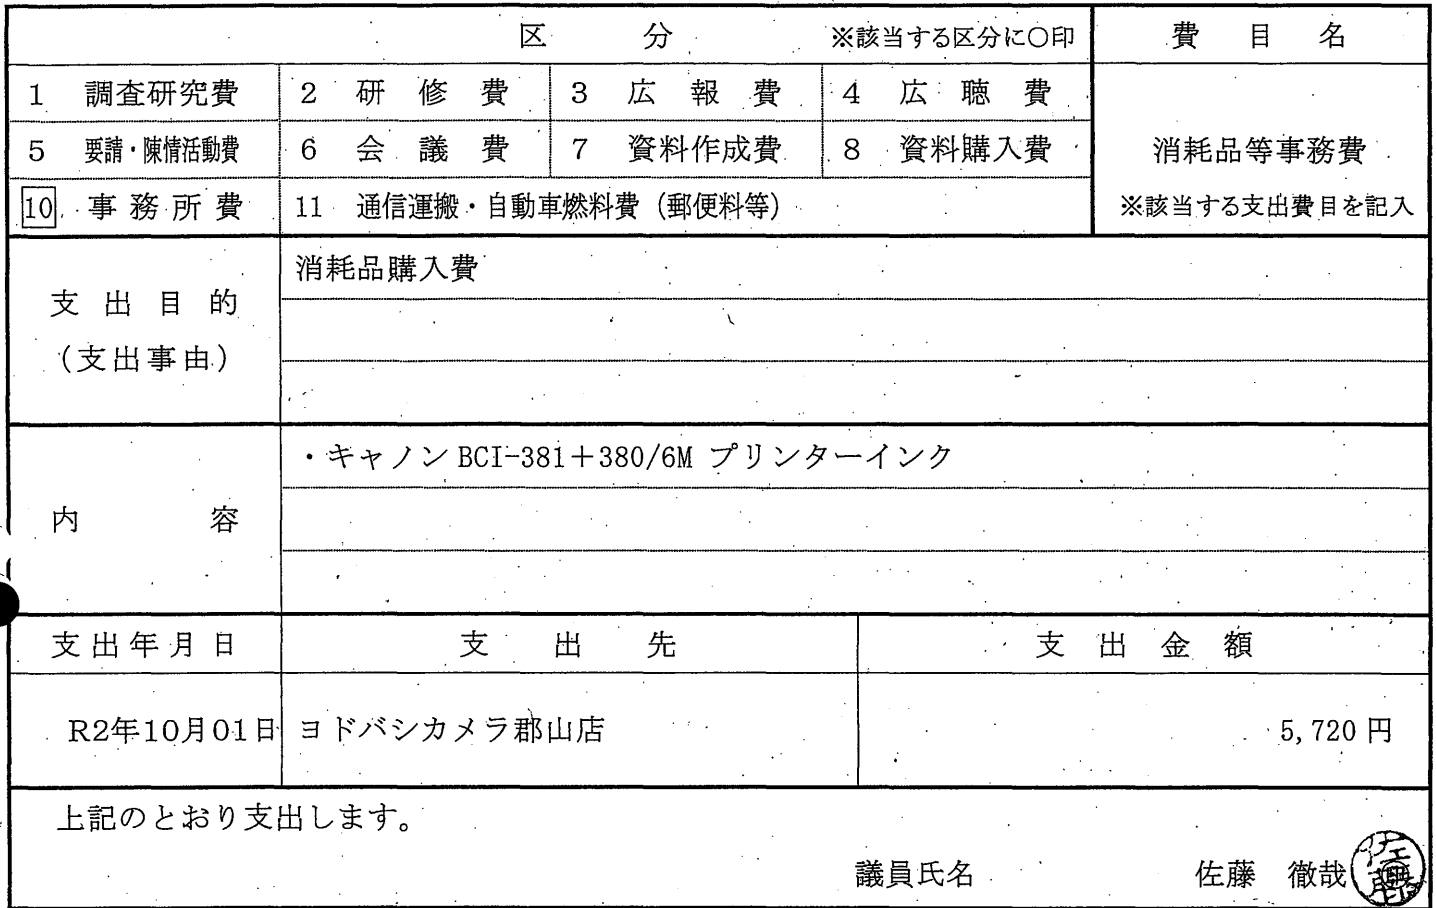 区分 ※該当する区分に○印 費目名
1 調査研究費 2 研修費 3 広報費 4 広聴費
5 要請・陳情活動費 6 会議費 7 資料作成費 8 資料購入費 消耗品等事務費
10 事務所費 11 通信運搬・自動車燃料費（郵便料等） ※該当する支出費目を記入
支出目的
（支出事由）
消耗品購入費
内容
・キャノン BCI-381＋380/6M プリンターインク
支出年月日 支出先 支出金額
R2年10月01日 ヨドバシカメラ郡山店 5,720円
上記のとおり支出します。
議員氏名 佐藤 徹哉
佐藤